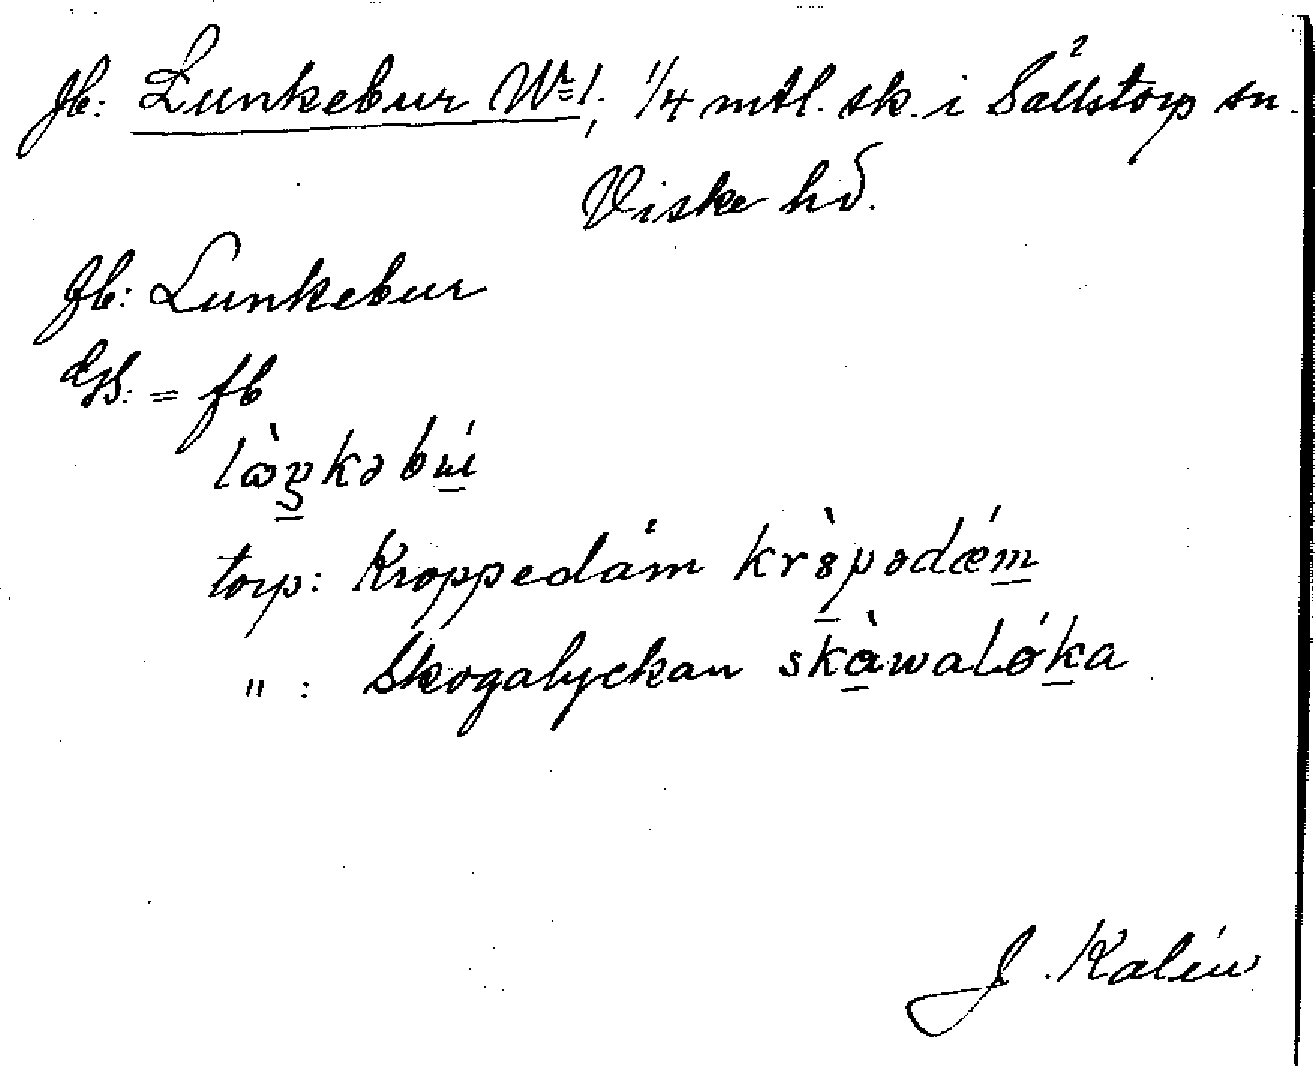 Jb: Lunkebur No 1; 1/4 mtl. sk. i Sällstorp sn.
Viske hd.
Jb: Lunkebur
GS: = fb
torp: Kroppedám
" : Skogalyckan skàwalǿka
J. Kalén